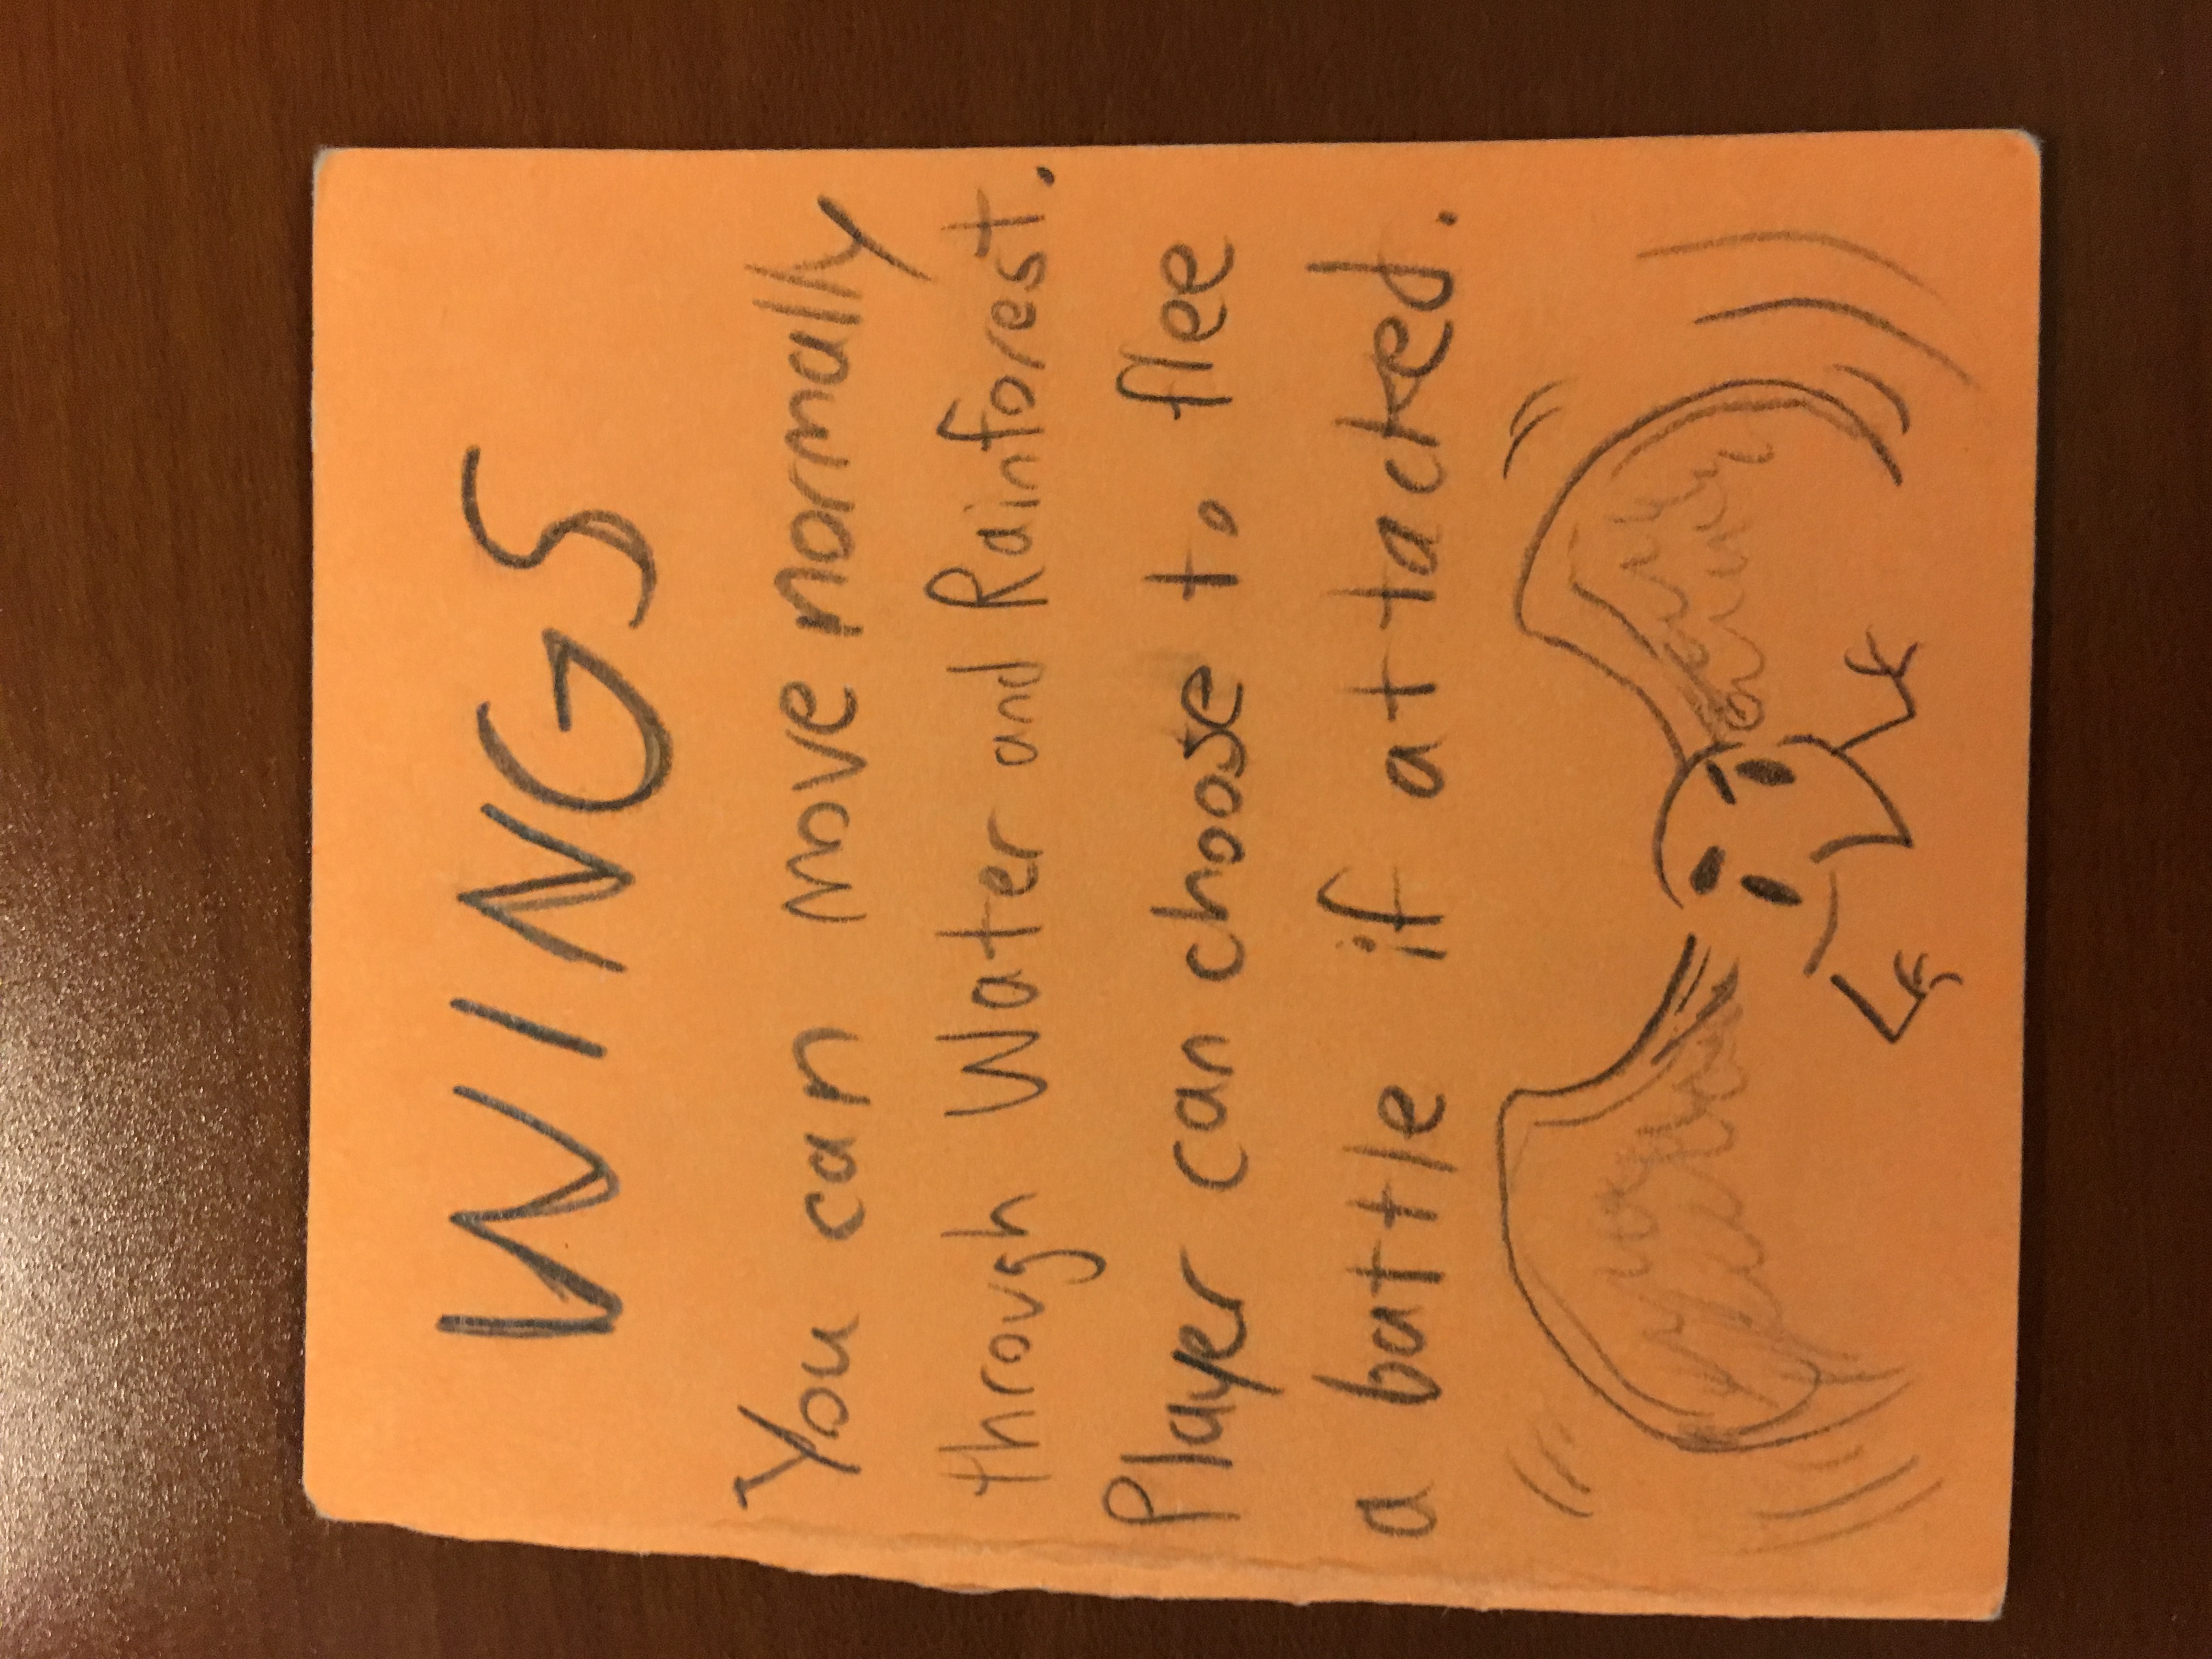 WINGS
You can move normally
through Water and Rainforest.
Player can choose to flee
a battle if attacked.